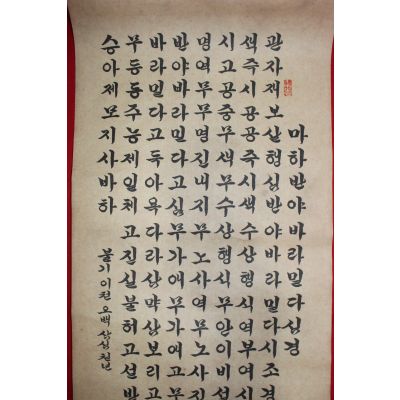 마하반야바라밀다심경
관자재보살행심반야바라밀다시조견
색즉시공공즉시색수상행식역부여시
시고공중무색무수상행식무안이비설
명역무무명진내지무노사역무노사진
반야바라밀다고심무가애무가애고무
바라밀다고득아뇩다라삼먁삼보리고
무등등주능제일체고진실불허고설반
승아제모지사바하
불기 이천 오백 삼십